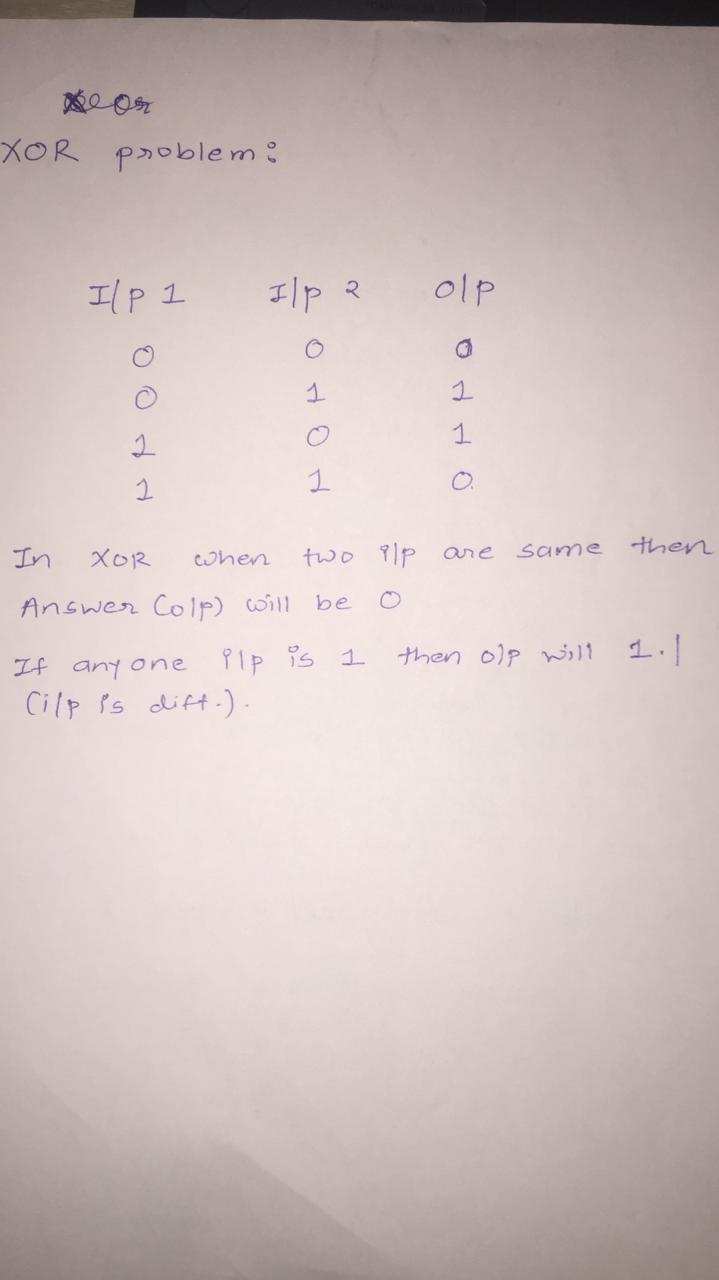 XOR problem:
I/p 1 I/p 2 o/p
0 0 0
0 1 1
1 0 1
1 1 0.
In XOR when two i/p are same then
Answer (o/p) will be 0
If any one i/p is 1 then o/p will 1.
(i/p is diff.).